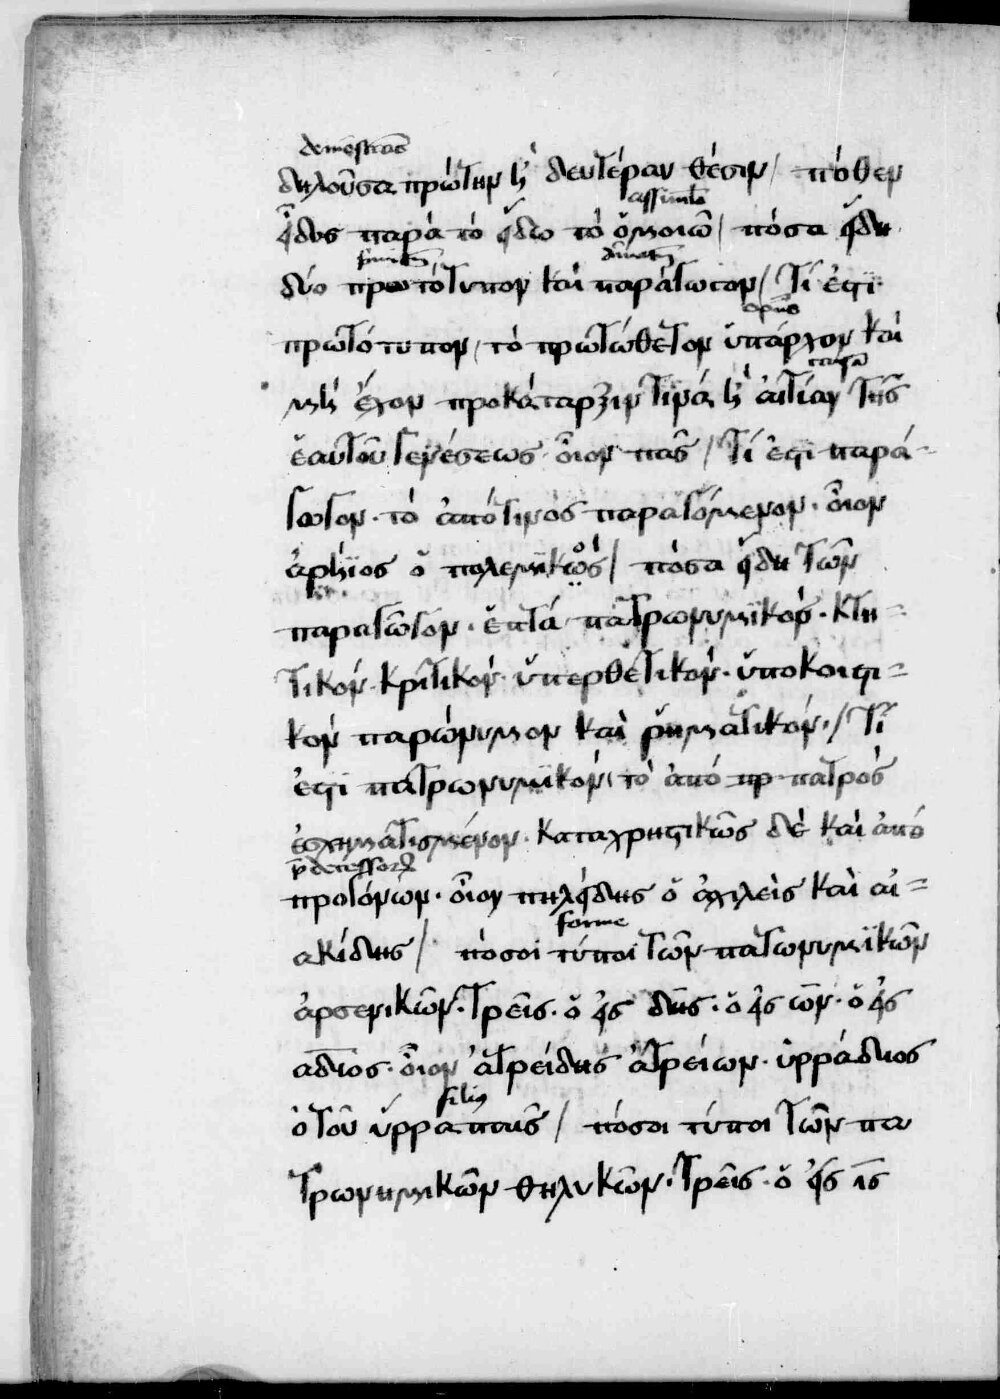 demostrans
δηλοῦσα πρώτην ἢ δευτέραν θέσιν / πόθεν
assimilo
εἶδος παρὰ τὸ εἴδω τὸ ὅμοιῶ / πόσα εἴδη
δύο πρωτότυπον καὶ παράγωγον / Τί ἐστι
πρωτότυπον / τὸ πρωτόθετον ὕπάρχον καὶ
μὴ ἔχον προκάταρξιν τϊνά ἢ ἀιτίαν τῆς
ἑαυτοῦ γενέσεως · οἷον πᾶς / Τί ἐστι παρά-
γωγον · τὸ ἀπότινὸς παραγόμενον · οἷον
ἀρήϊος ὅ πολεμϊκός / πόσα εἴδη τῶν
παραγῶγον · ἕπτά πατρωνυμϊκόν · κτη-
τικόν · κρϊτικόν · ὕπερθετικόν · ὕποκοιστι-
κόν παρώνυμον καὶ ῥηματικόν · / Τί
ἐστι πατρωνυμϊκόν / τὸ ἀπό πρ πατρὸς
ἐσχηματισμένον · καταχρηστικῶς δὲ καὶ ἀπό
predecessorum
προγόνων · οἷον πηλείδης ὅ ἀχιλεὺς καὶ αἰ-
forme
ακίδης / πόσοι τύποι τῶν πατωνυμϊκῶν
ἀρσενικῶν · τρεῖς · ὅ εἰς δης · ὅ εἰς ων · ὅ εἰς
αδιος · οἷον ἀτρείδης ἀτρείων · ὑρράδιος
filius
ὁ τοῦ ὕρρα παῖς / πόσοι τύποι τῶν πα
τρωνημικῶν θηλυκῶν · τρεῖς · ὅ εἰς ις